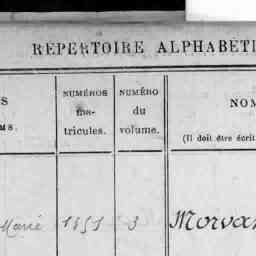 RÉPERTOIRE ALPHABÉTI
S
MS.
NUMÉROS
ma-
tricules.
NUMÉRO
du
volume.
NOM
(Il doit être écrit
Marié 1851 3 Morvan